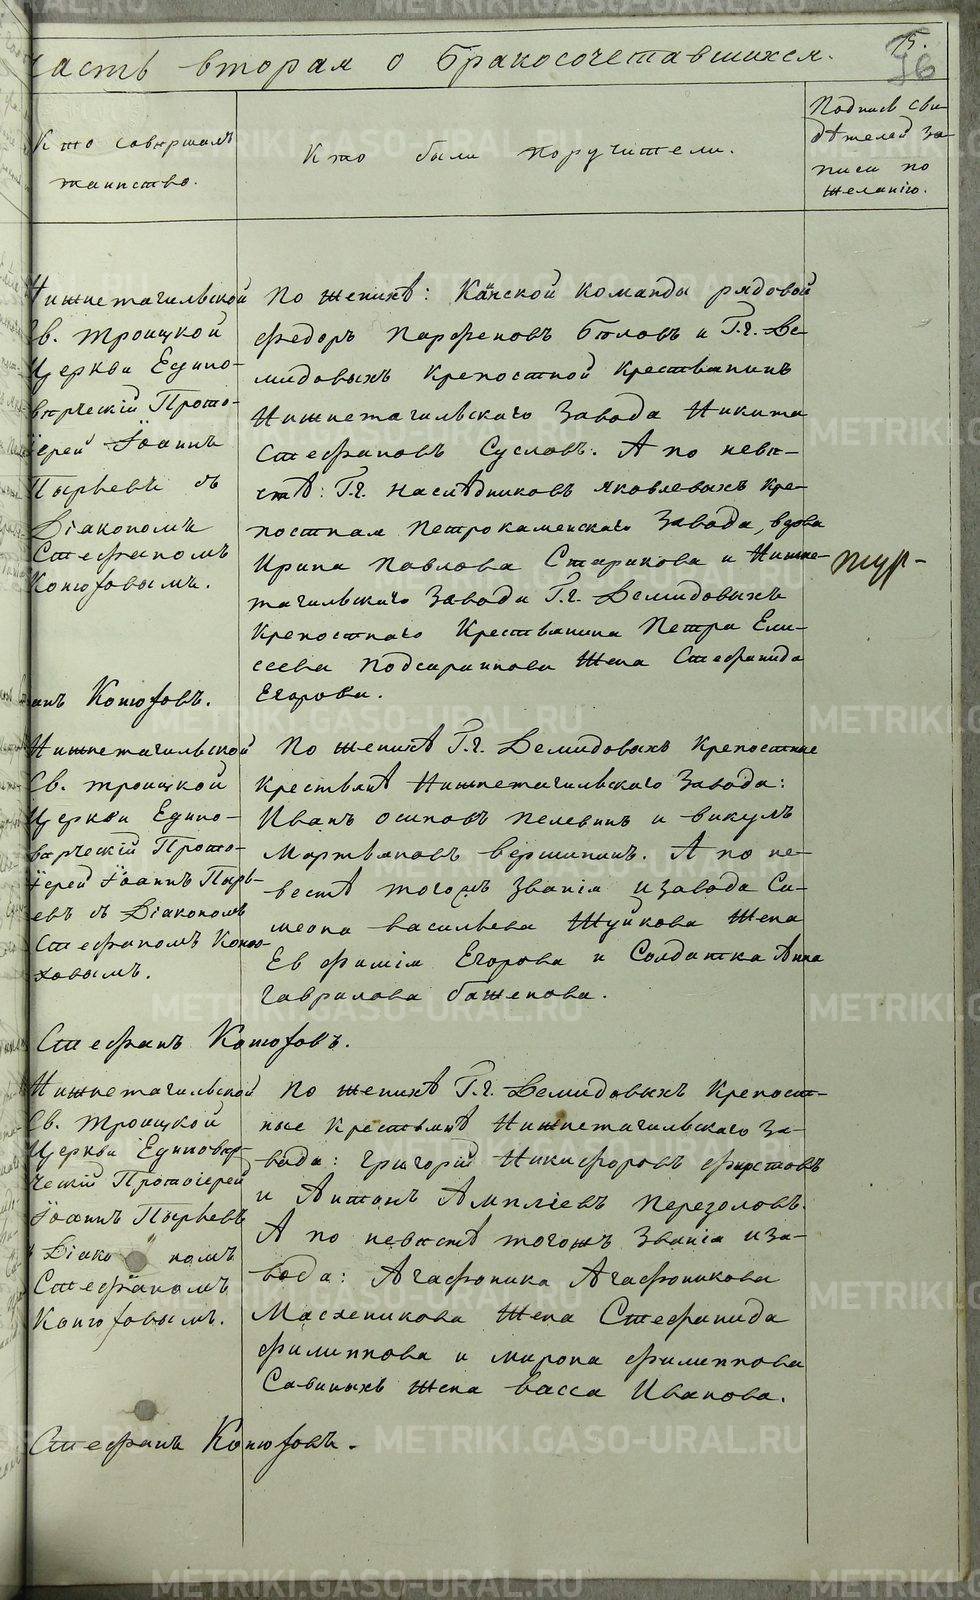 Часть вторая о бракосочетавшихся.
15.
36
Кто совершалъ
таинство.
Кто были поручители.
Подпись сви-
дѣтелей за-
писи по
желанію.
Нижнетагильской
Св. Троицкой
Церкви Едино-
вѣрческій Прото-
іерей Іоаннъ
Пырьевъ съ
Діакономъ
Стефаномъ
Конюховымъ.
анъ Конюховъ.
По женихѣ: Камской команды рядовой
Федоръ Парфеновъ Бѣловъ и Г.г. Де-
мидовыхъ крепостной Крестьянинъ
Нижнетагильскаго Завода Никита
Стефановъ Сусловъ. А по невѣ-
стѣ: Г.г. Наслѣдниковъ Яковлевыхъ кре-
постная Петрокаменскаго Завода, вдова
Ирина Павлова Старикова и Нижне-
тагильскаго Завода Г.г. Демидовыхъ
Крепостнаго Крестьянина Петра Ели-
сеева Подсаранкова Жена Стефанида
Егорова.
Нижнетагильской
Св. Троицкой
Церкви Едино-
вѣрческій Прото-
іерей Іоаннъ Пырь-
евъ съ Діакономъ
Стефаномъ Коню-
ховымъ.
Стефанъ Конюховъ.
По женихѣ Г.г. Демидовыхъ Крепостные
Крестьянѣ Нижнетагильскаго Завода:
Иванъ Осиповъ Пелевинъ и Викулъ
Мартьяновъ Вершининъ. А по не-
вестѣ тогожъ Званія и завода Си-
меона Васильева Шуйкова Жена
Евфимія Егорова и Солдатка Анна
Гаврилова Баженова.
Нижнетагильской
Св. Троицкой
Церкви Единовѣр-
ческій Протоіерей
Іоаннъ Пырьевъ
Діакономъ
Стефаномъ
Конюховымъ.
Стефанъ Конюховъ.
По женихѣ Г.г. Демидовыхъ Крепост-
ные Крестьянѣ Нижнетагильскаго За-
вода: Григорій Никифоровъ
и Антонъ Амплiевъ Перезоловъ.
А по невестѣ тогожъ Званія и за-
вода: Агафоника Агафоникова
Масленикова Жена Стефанида
Филиппова и Мирона Филиппова
Савиныхъ Жена Васса Иванова.
METRIKI.GASO-URAL.RU